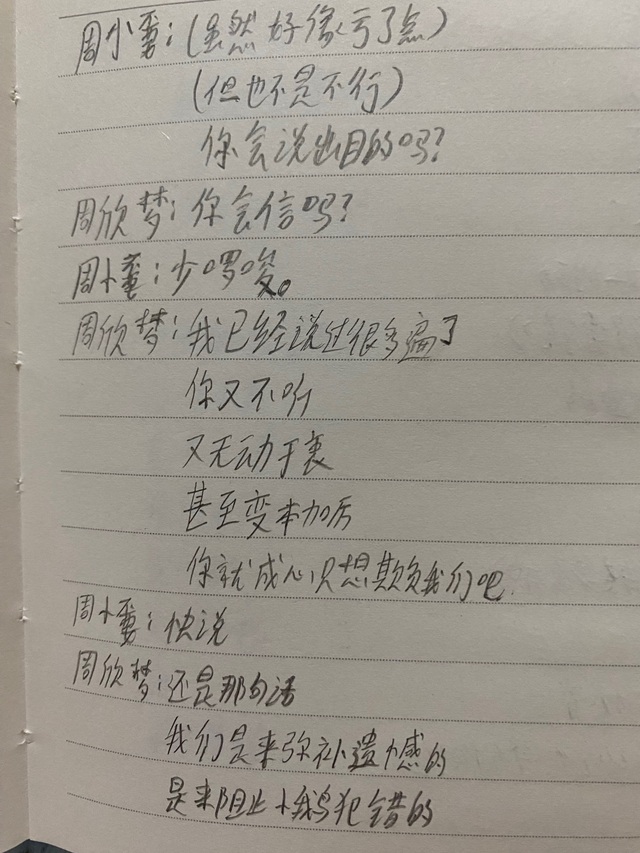 周小蔓：(虽然好像亏了点)
(但也不是不行)
你会说出目的吗？
周欣梦：你会信吗？
周小蔓：少啰唆。
周欣梦：我已经说过很多遍了
你又不听
又无动于衷
甚至变本加厉
你就成心只想欺负我们吧.
周小蔓：快说
周欣梦：还是那句话
我们是来弥补遗憾的
是来阻止小鹅犯错的